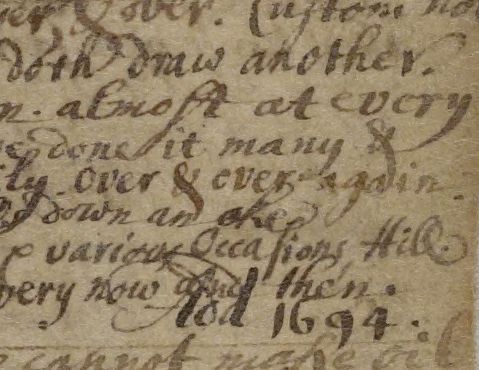 over. Custom
doth draw another.
almost at every
done it many &
ily. over & over again.
down an ake
various Occasions, Hill.
very now And then.
Add 1694.
cannot make